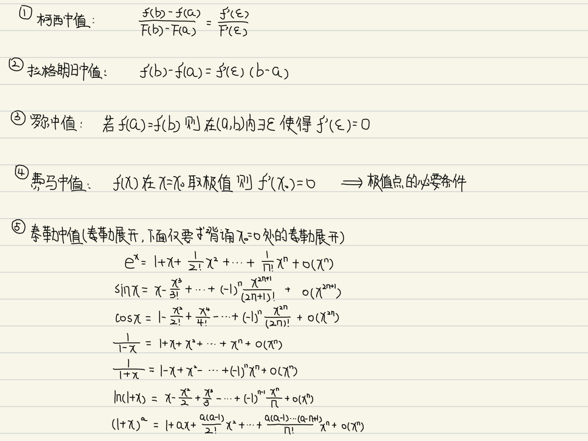 ① 柯西中值: (f(b)-f(a))/(F(b)-F(a)) = f'(ε)/F'(ε)
② 拉格朗日中值: f(b)-f(a)=f'(ε)(b-a)
③ 罗尔中值: 若f(a)=f(b) 则在(a,b)内∃ε 使得f'(ε)=0
④ 费马中值: f(x)在x=x₀取极值 则f'(x₀)=0 ⟹ 极值点的必要条件
⑤ 泰勒中值(泰勒展开,下面仅要求背诵x₀=0处的泰勒展开)
eˣ = 1+x+ 1/2! x² + ⋯ + 1/n! xⁿ + o(xⁿ)
sinx = x - x³/3! + ⋯ + (-1)ⁿ x²ⁿ⁺¹/(2n+1)! + o(x²ⁿ⁺¹)
cosx = 1 - x²/2! + x⁴/4! - ⋯ + (-1)ⁿ x²ⁿ/(2n)! + o(x²ⁿ)
1/(1-x) = 1+x+x²+⋯+xⁿ+o(xⁿ)
1/(1+x) = 1-x+x²-⋯+(-1)ⁿxⁿ+o(xⁿ)
ln(1+x) = x - x²/2 + x³/3 - ⋯ + (-1)ⁿ⁻¹ xⁿ/n + o(xⁿ)
(1+x)ᵃ = 1+ax+ a(a-1)/2! x² + ⋯ + a(a-1)⋯(a-n+1)/n! xⁿ + o(xⁿ)